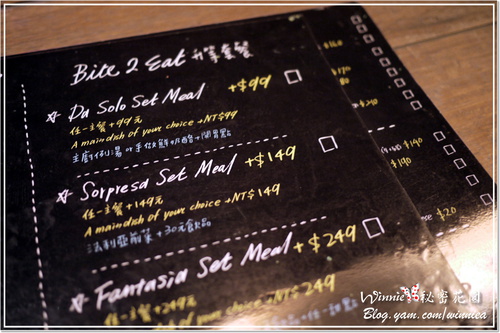 Bite 2 Eat 升等套餐
☆ Da Solo Set Meal +$99 □
任一主餐+99元
A main dish of your choice +NT$99
☆ Sorpresa Set Meal +$149 □
任一主餐+149元
A main dish of your choice +NT$149
+30元飲品
☆ Fantasia Set Meal +$249 □
任一主餐+249元
NT$249
$240
$190
$190
$20
Winnie 秘密花園
Blog.yam.com/winniea